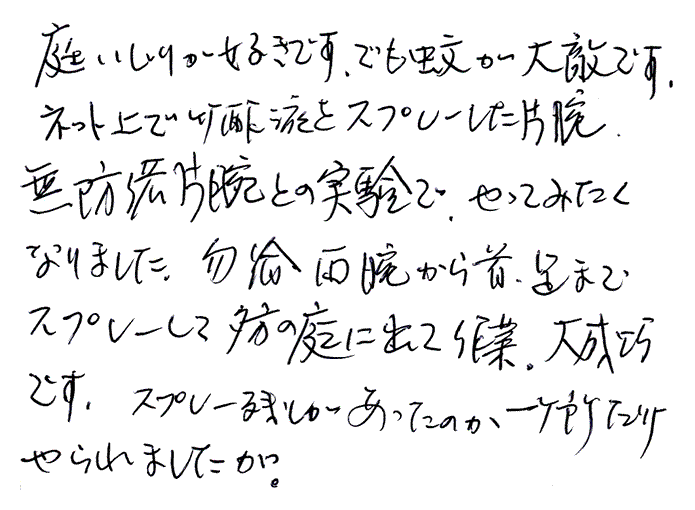 庭いじりが好きです、でも蚊が大敵です。
ネット上で竹酢液をスプレーした片腕、
無防備片腕との実験で、やってみたく
なりました。勿論両腕から首、足まで
スプレーして夕方の庭に出て作業。大成功
です。スプレー残しがあったのか、一ヶ所だけ
やられましたが。